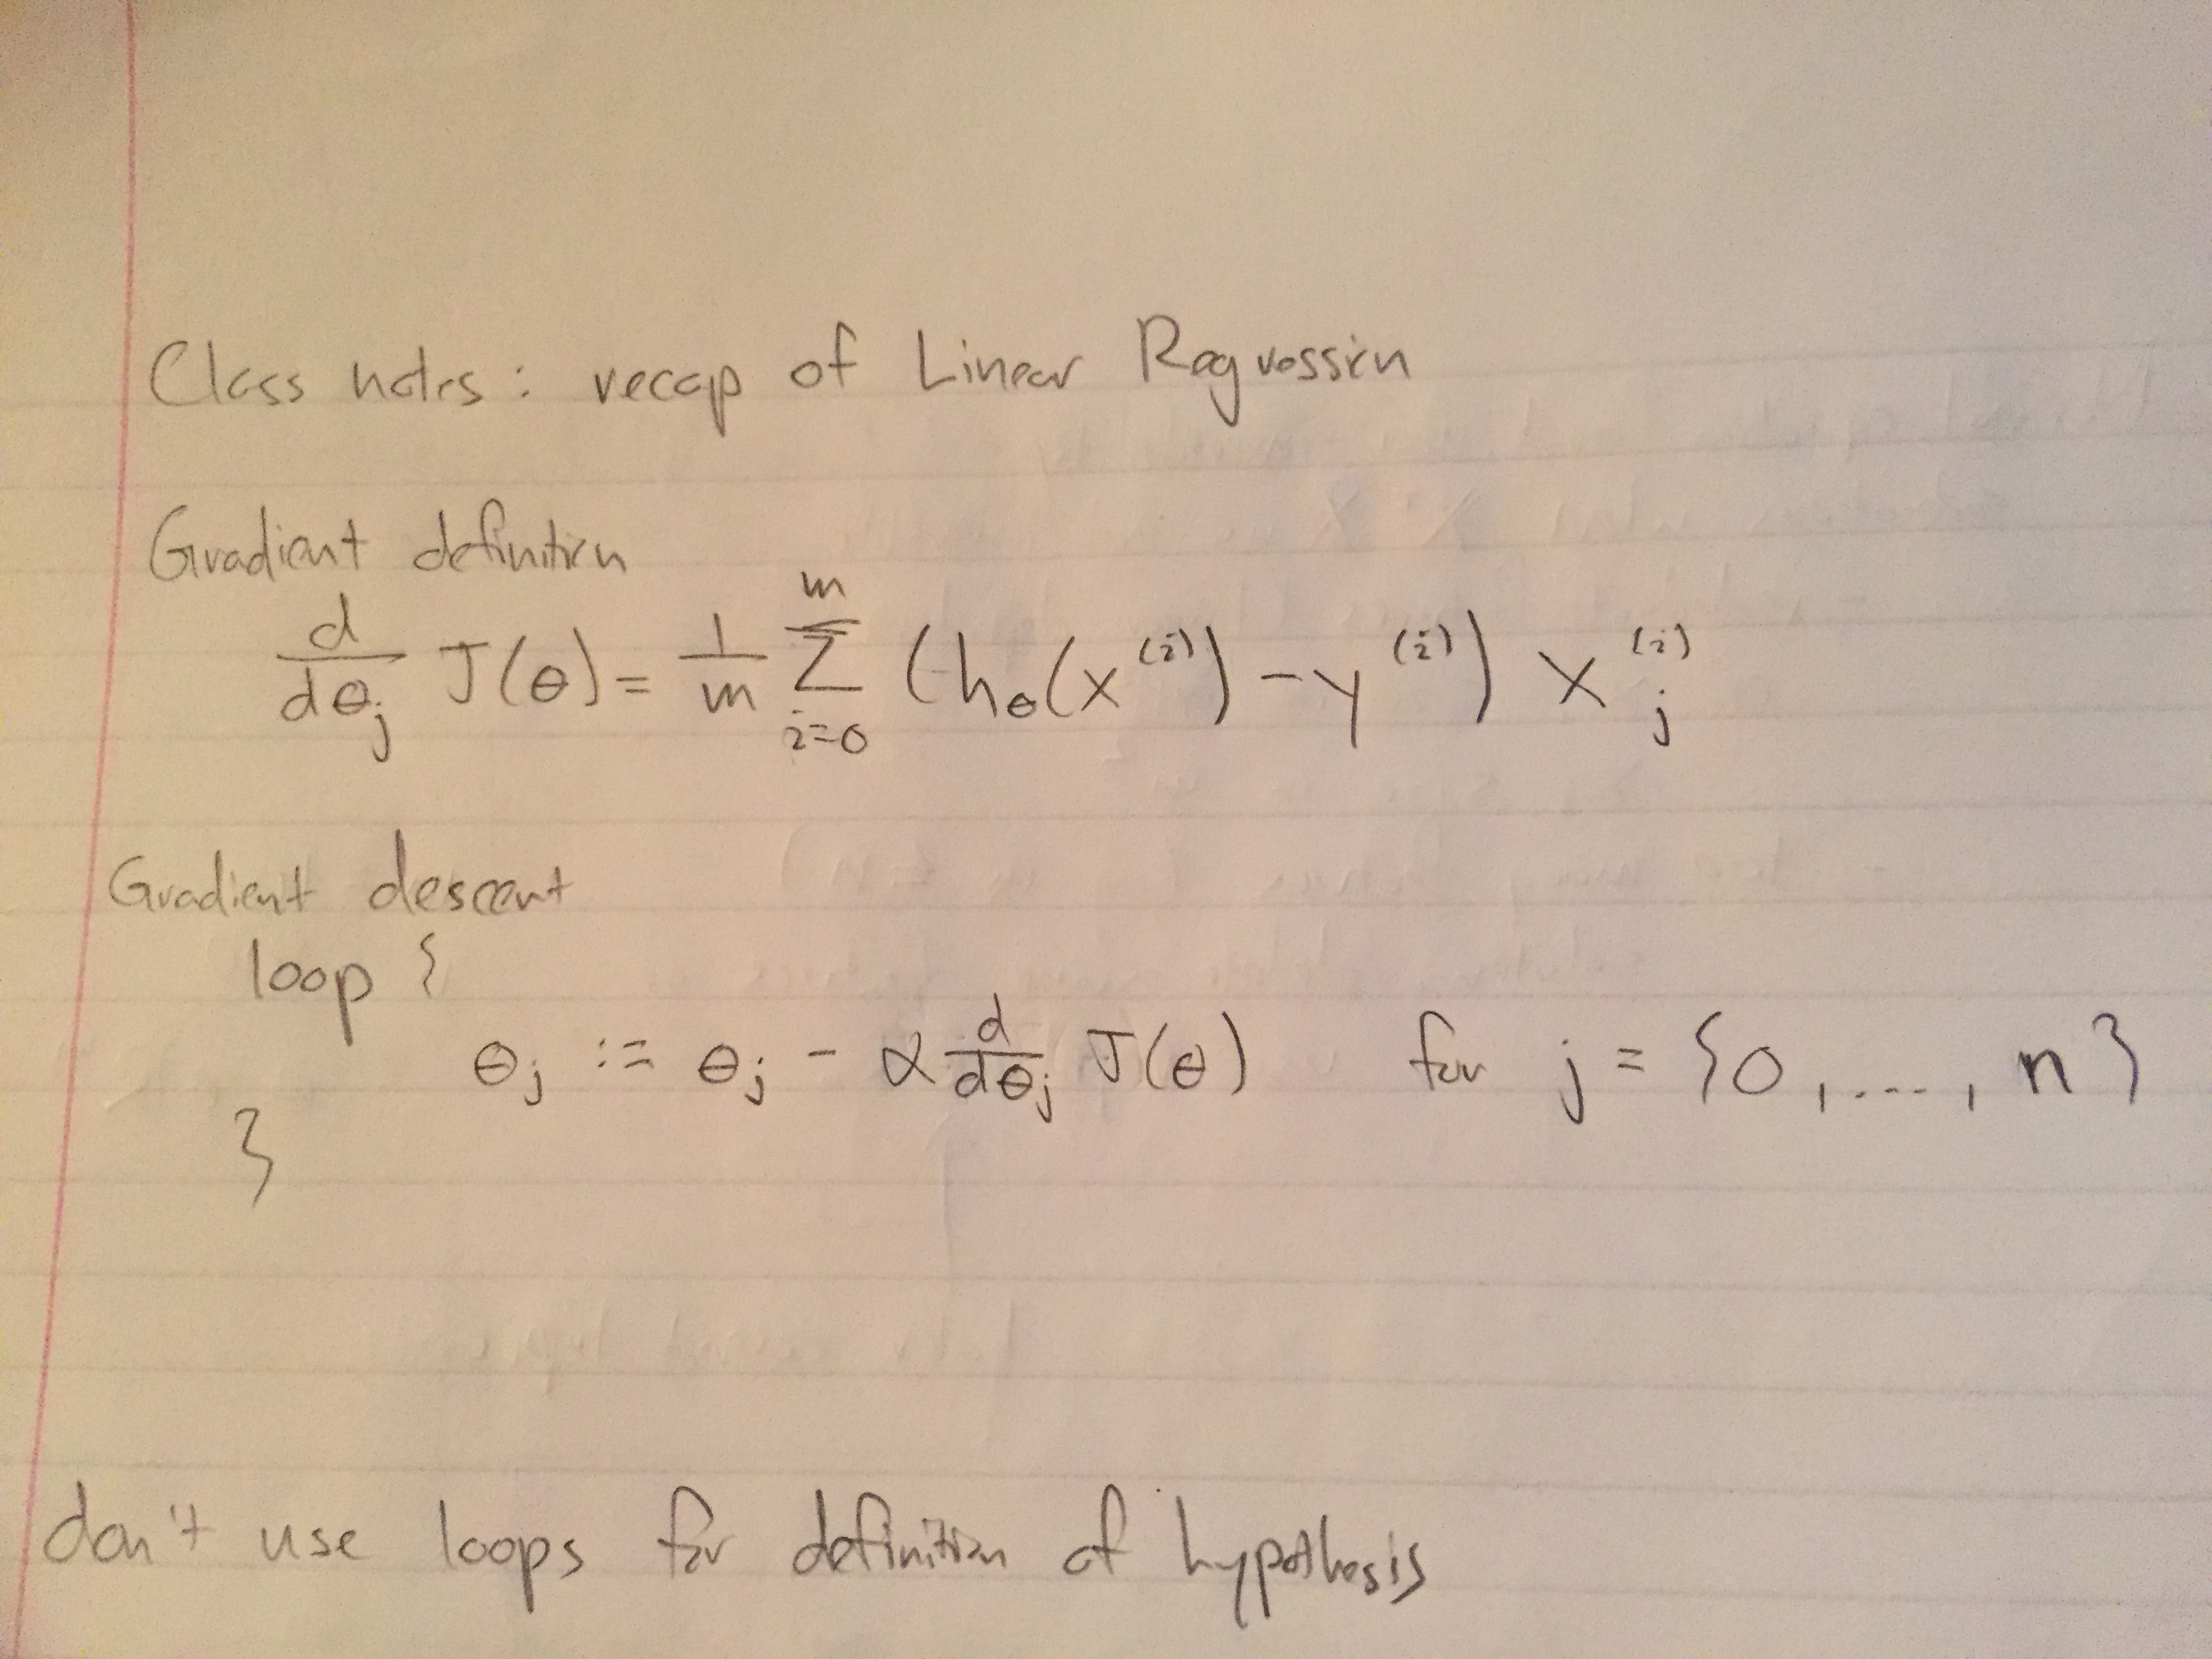 Class notes: recap of Linear Regression
Gradient definition
d/dθ_j J(θ) = 1/m Σ_{i=0}^{m} (h_θ(x^(i)) - y^(i)) x_j^(i)
Gradient descent
loop {
θ_j := θ_j - α d/dθ_j J(θ) for j = {0, ..., n}
}
don't use loops for definition of hypothesis